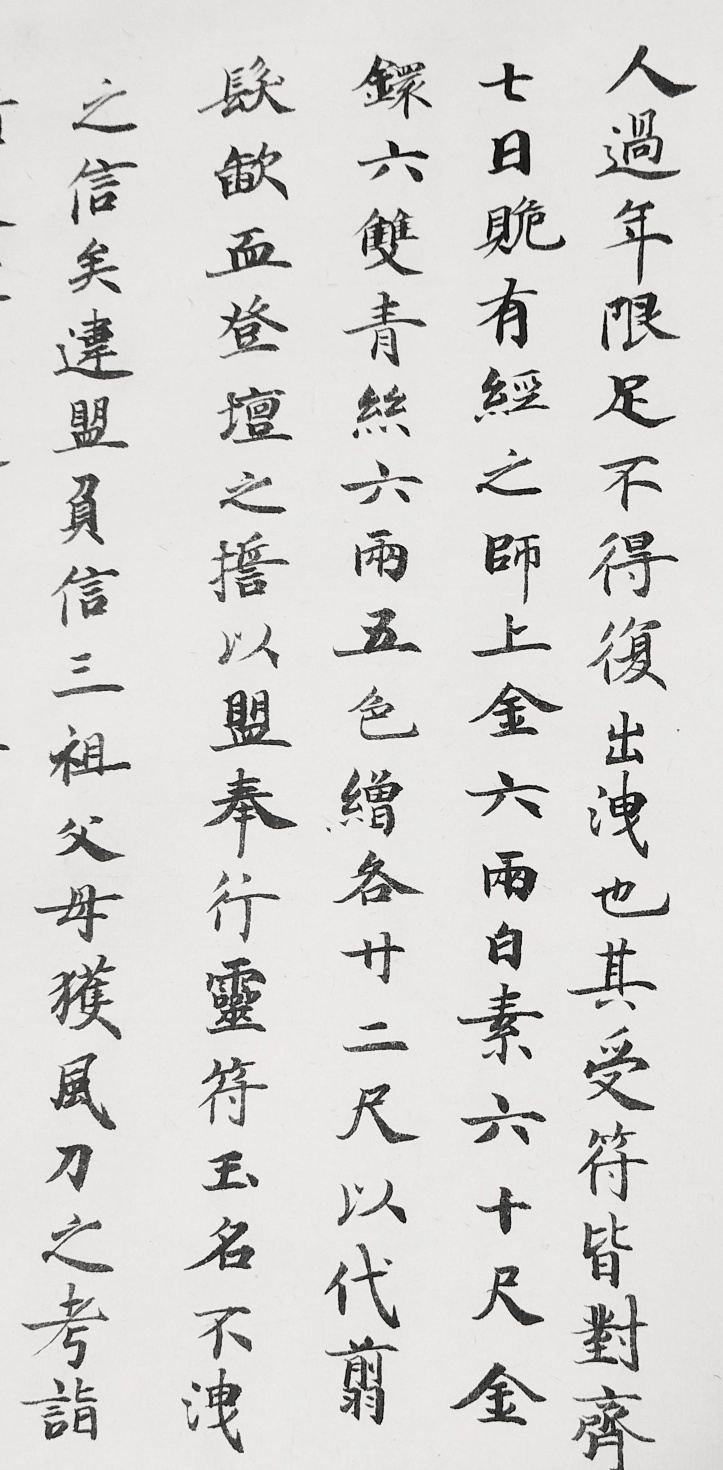 人過年限足不得復出洩也其受符皆對齊
七日賝有經之師上金六兩白素六十尺金
鐶六雙青絲六兩五色繒各廿二尺以代翦
髮歃血登壇之擔以盟奉行靈符玉名不洩
之信矣違盟負信三祖父母獲風刀之考詣